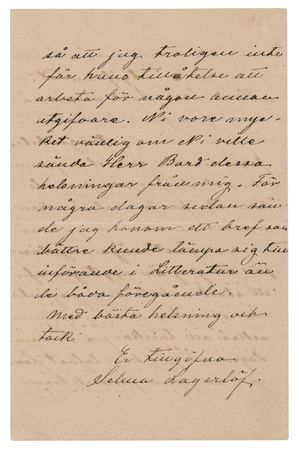 så att jag troligen inte
får hans tillåtelse att
arbeta för någon annan
utgifvare. Ni vore myc-
ket vänlig om Ni ville
sända Herr Bard dessa
helsningar från mig. För
några dagar sedan sän
de jag honom ett bref som
bättre kunde lämpa sig till
införande i Litteratur än
de båda föregående.
Med bästa helsning och
tack
Er tillgifna
Selma Lagerlöf.